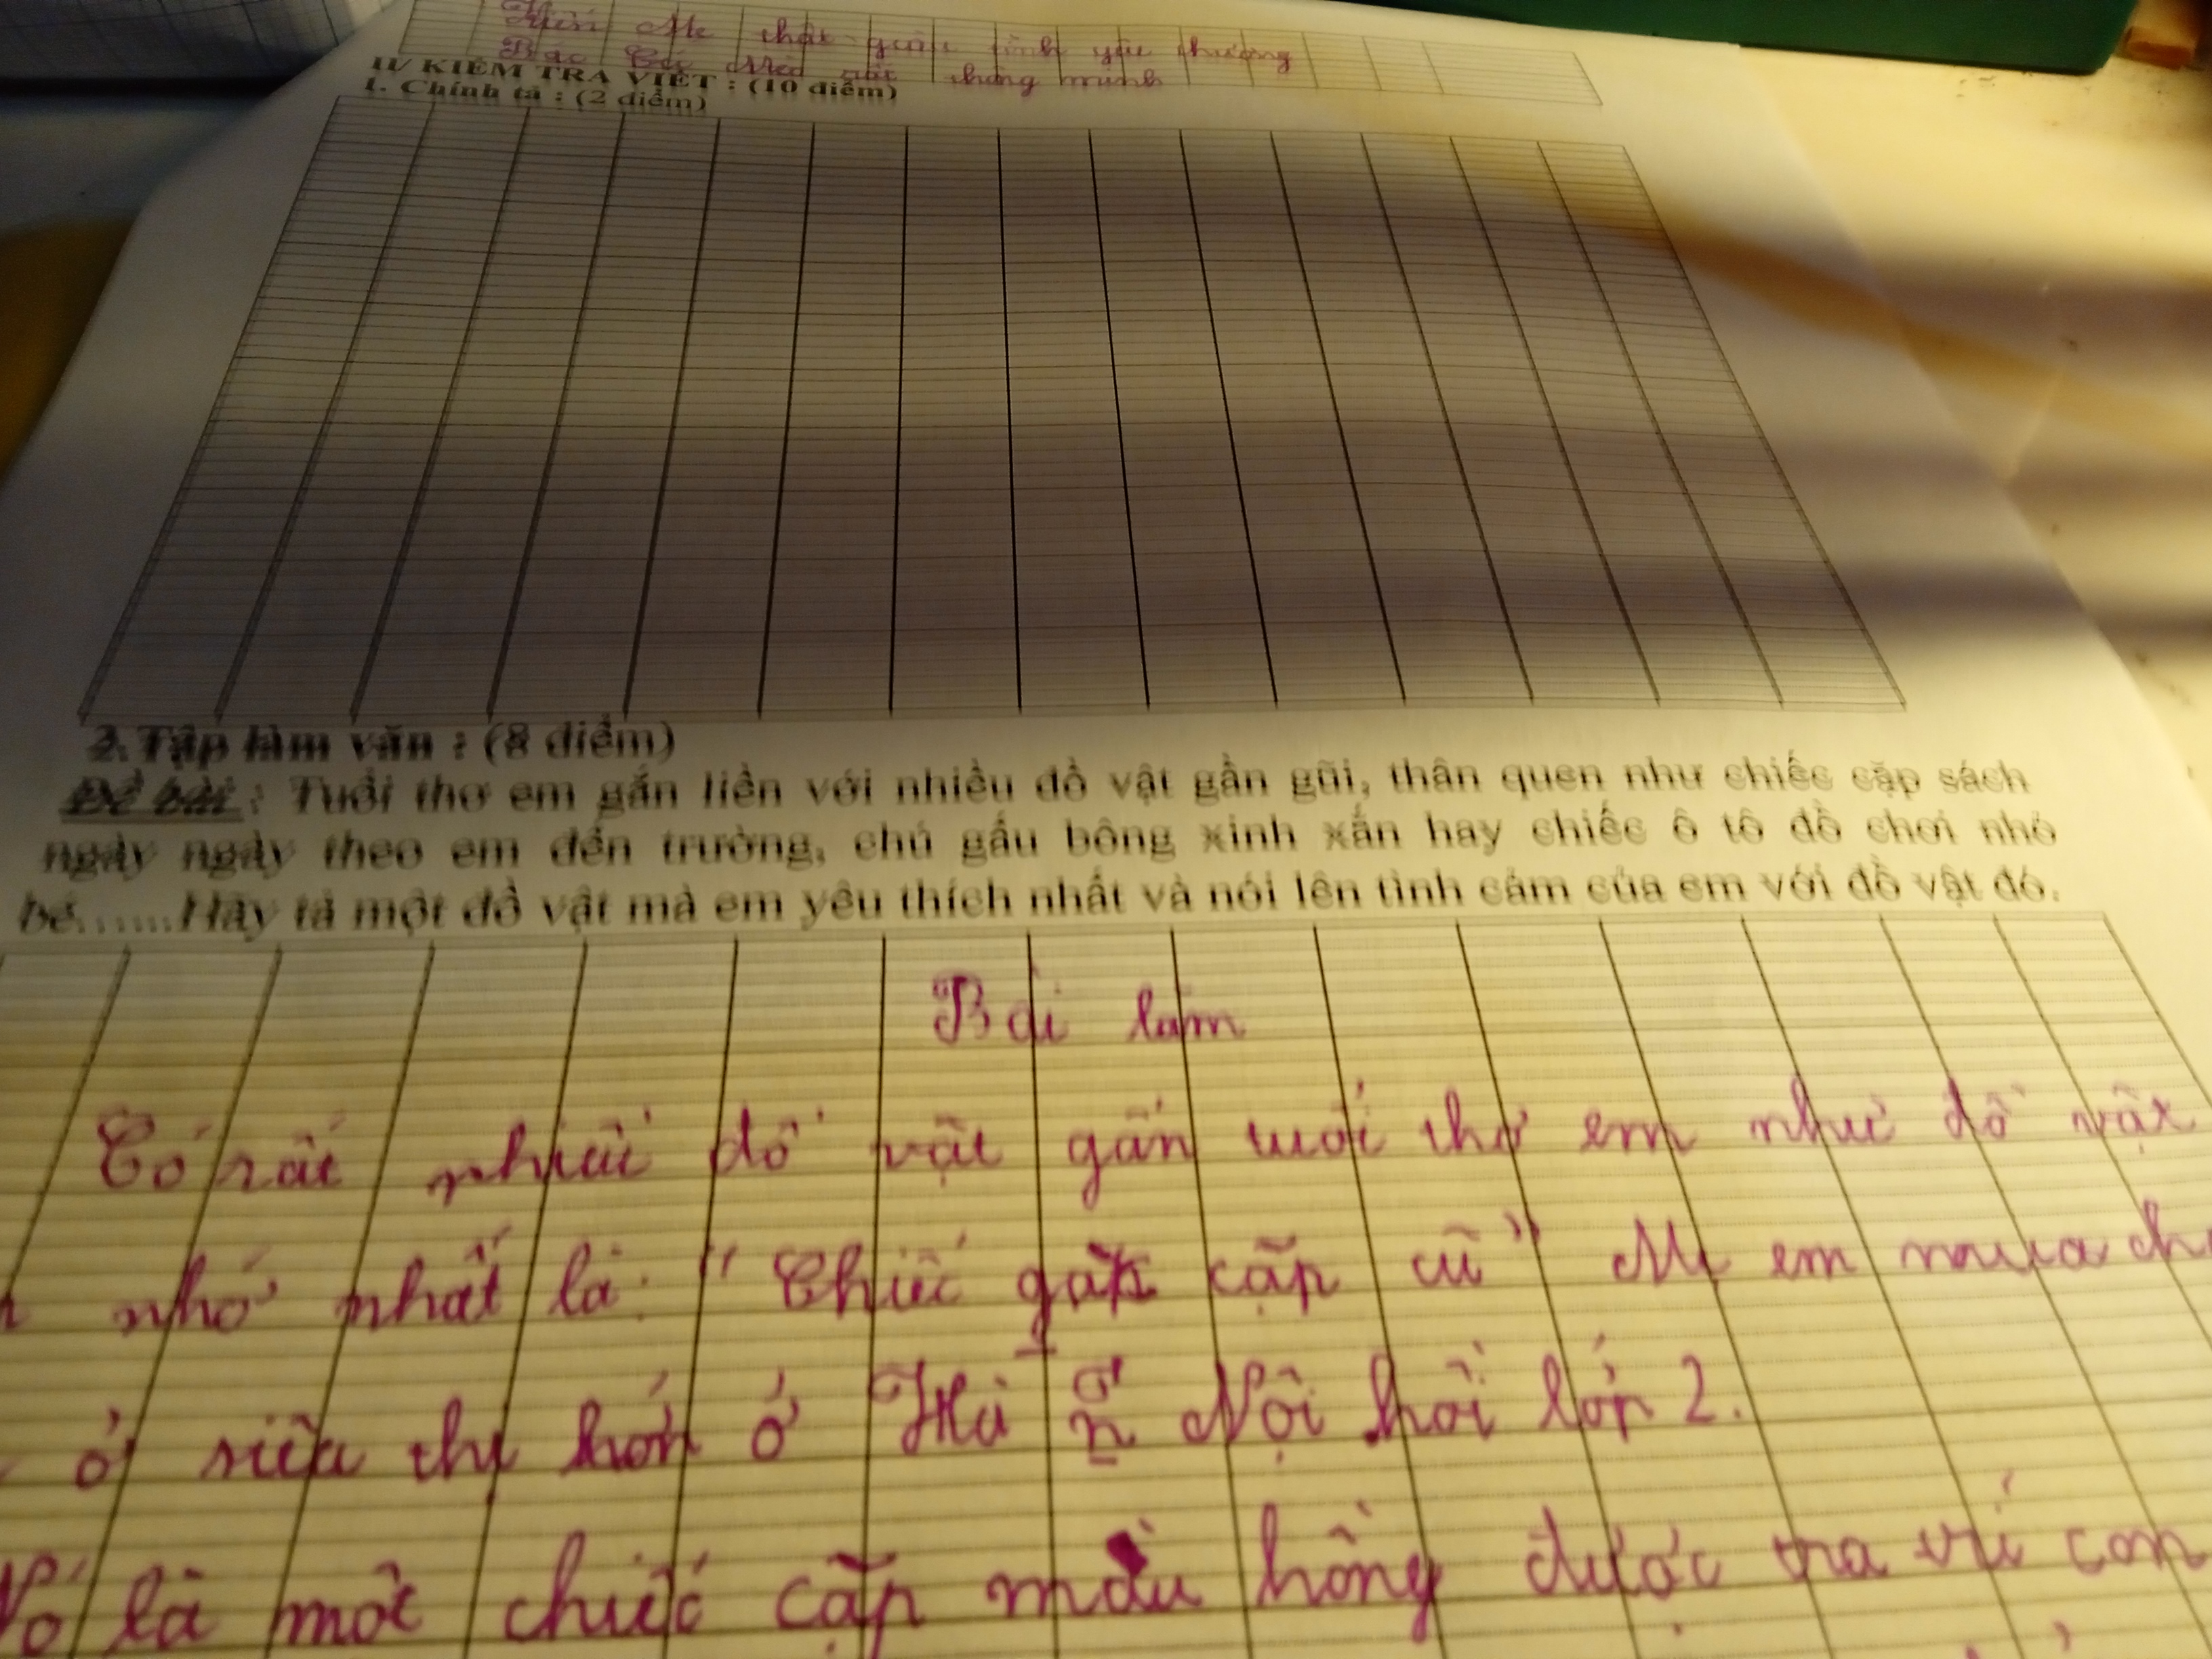 Mẹ thật giàu tình yêu thương
Bác Mèo rất thông minh
II/ KIỂM TRA VIẾT : (10 điểm)
1. Chính tả : (2 điểm)
2. Tập làm văn : (8 điểm)
Đề bài : Tuổi thơ em gắn liền với nhiều đồ vật gần gũi, thân quen như chiếc cặp sách
ngày ngày theo em đến trường, chú gấu bông xinh xắn hay chiếc ô tô đồ chơi nhỏ
bé......Hãy tả một đồ vật mà em yêu thích nhất và nói lên tình cảm của em với đồ vật đó.
Bài làm
Có rất nhiều đồ vật gắn tuổi thơ em như đồ vật
nhớ nhất là: "Chiếc cặp cũ" Mẹ em mua
ở siêu thị lớn ở Hà Nội hồi lớp 2.
Nó là một chiếc cặp màu hồng được tra trí con